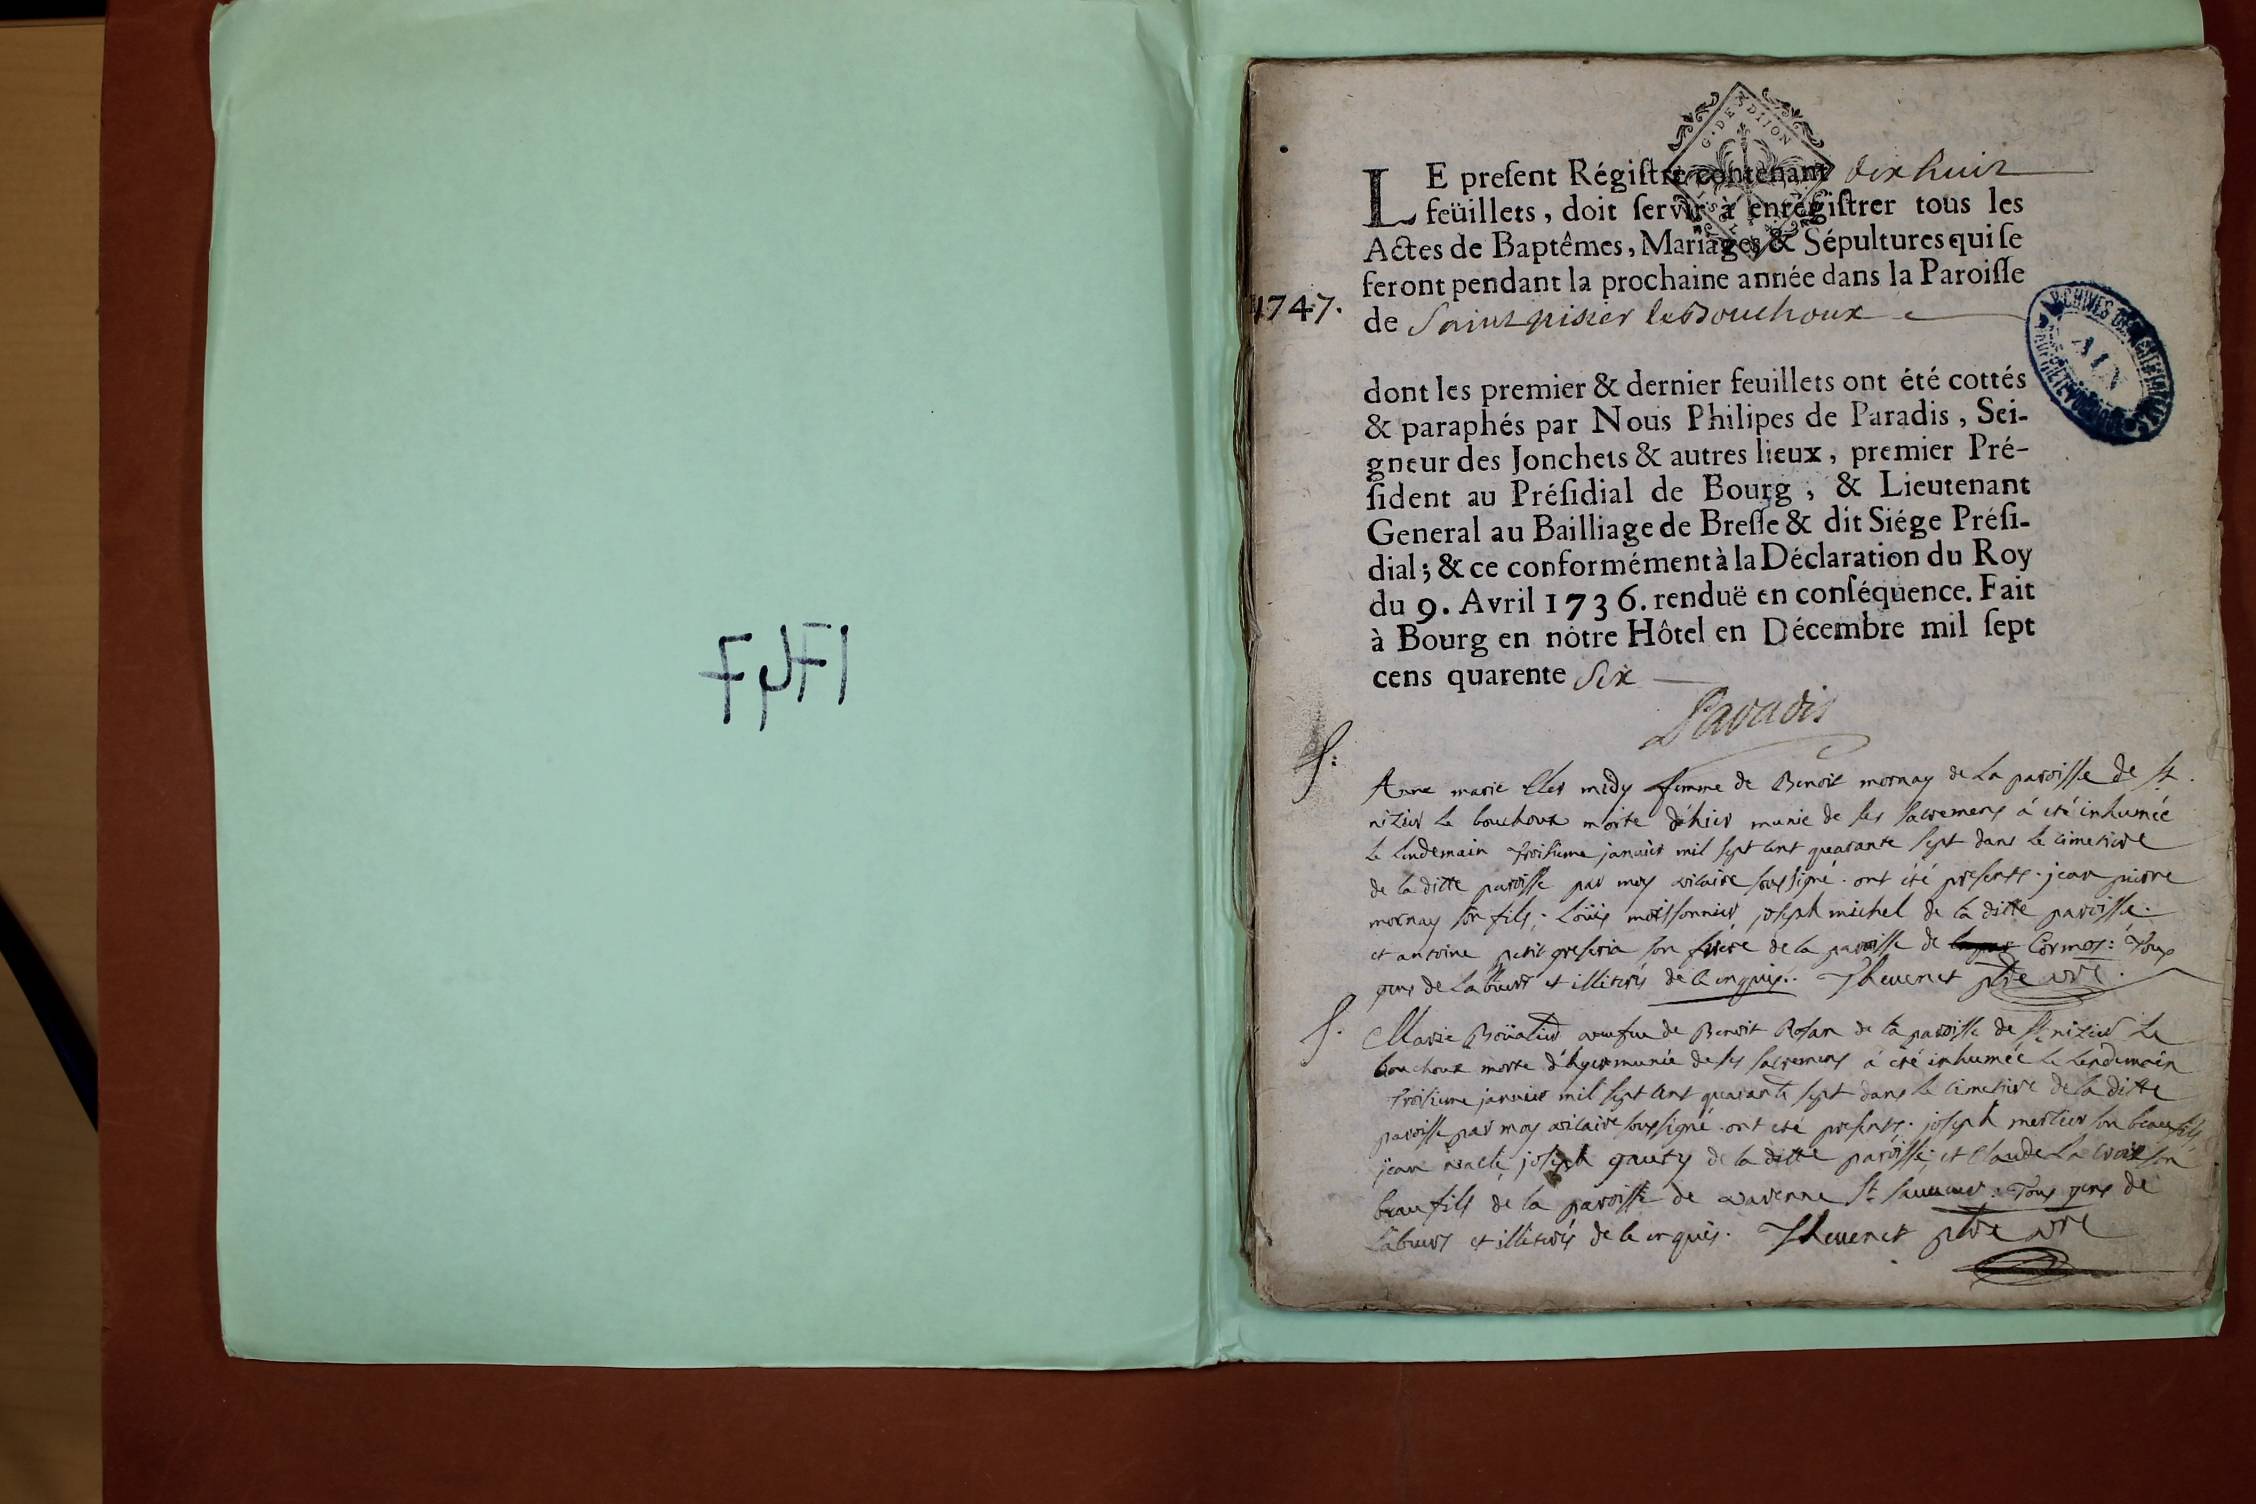 1747.
LE preſent Régiſtre contenant dix huit
feüillets, doit ſervir à enrégiſtrer tous les
Actes de Baptêmes, Mariages & Sépultures qui ſe
feront pendant la prochaine année dans la Paroiſſe
de Saint nisier le Bouchoux
dont les premier & dernier feuillets ont été cottés
& paraphés par Nous Philipes de Paradis, Sei-
gneur des Jonchets & autres lieux, premier Pré-
ſident au Préſidial de Bourg, & Lieutenant
General au Bailliage de Breſſe & dit Siége Préſi-
dial; & ce conformément à la Déclaration du Roy
du 9. Avril 1736. renduë en conſéquence. Fait
à Bourg en nòtre Hôtel en Décembre mil ſept
cens quarente Six
Paradis
S:
Anne marie midy femme de Benoit mornay de la paroisse de St.
nizier le bouchoux morte d'hier munie de ses sacremens á été inhumée
le lendemain troisieme janvier mil sept cent quarante sept dans le cimetiere
de la ditte paroisse par moy vicaire soussigné. ont été presents. jean pierre
mornay son fils; Loüis moissonnier, joseph michel de la ditte paroisse.
et antoine petit son frere de la paroisse de Cormos: Tous
gens de Labeur et illiterés de ce enquis. Thevenet ptre vre.
S.
Marie veufue de Benoit Rosan de la paroisse de St nizier Le
bouchoux morte d'hyer munie de ses sacremens á été inhumée le lendemain
troisieme janvier mil sept cent quarante sept dans le cimetiere de la ditte
paroisse par moy vicaire soussigné. ont été presents. joseph mercier son beau fils
jean joseph gauty de la ditte paroisse; et Claude Lacroix son
beau fils de la paroisse de varenne St. sauveur. Tous gens de
Labeurs et illiterés de ce enquis. Thevenet ptre vre
G. DE DIJON
ARCHIVES DÉPARTEMENTALES
AIN